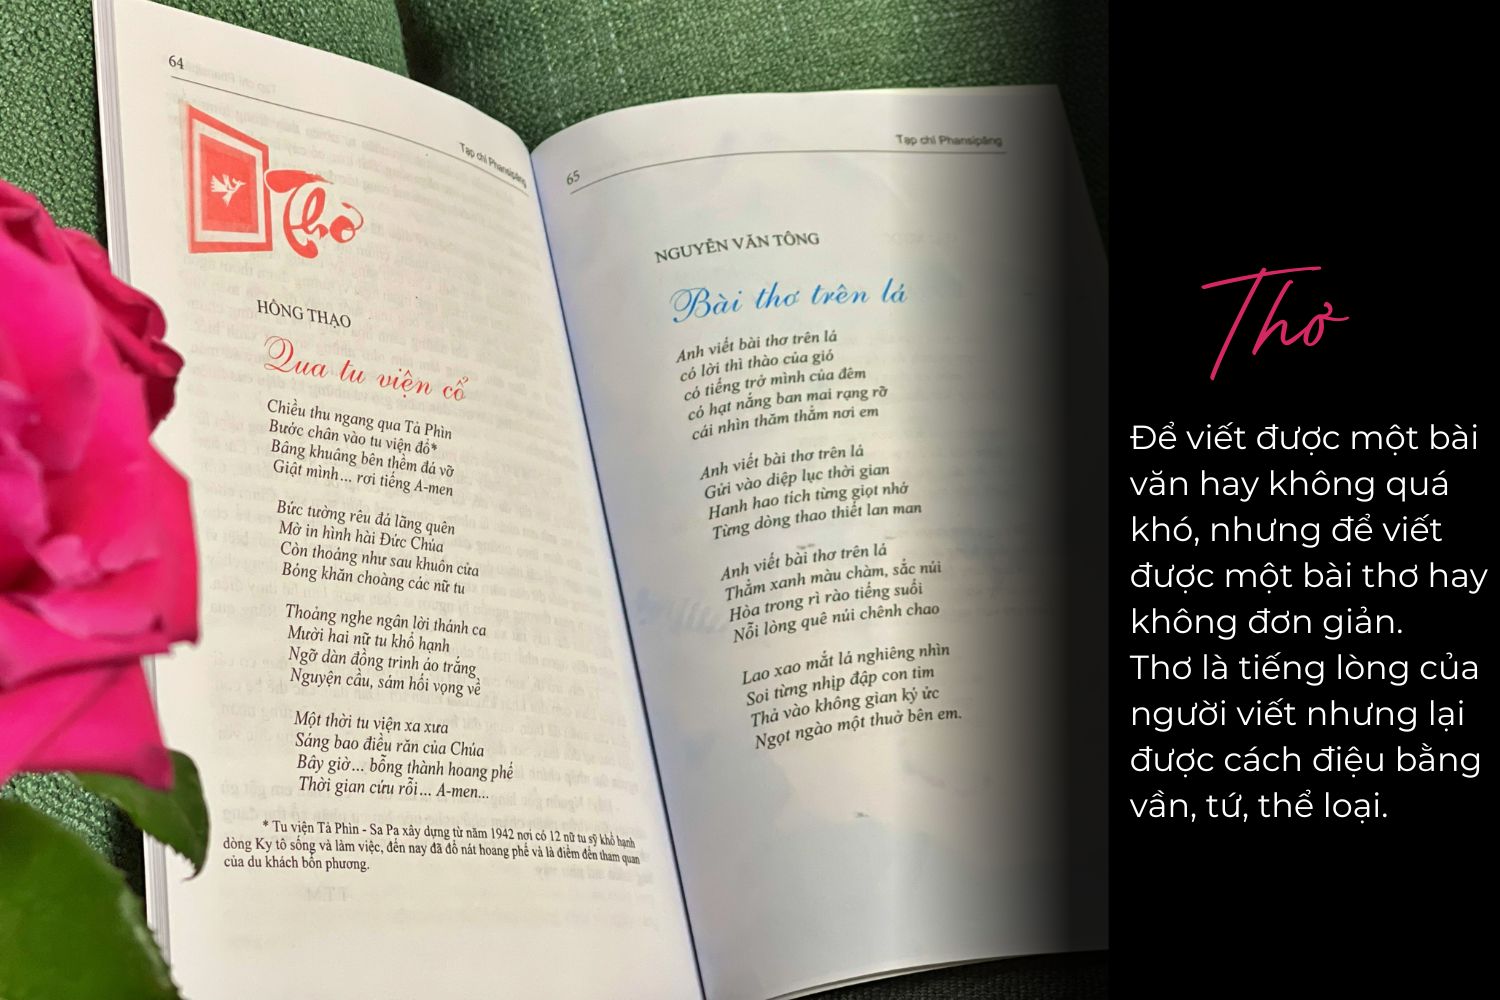 64
Tạp chí Phansipăng
Thơ
HỒNG THẠO
Qua tu viện cổ
Chiều thu ngang qua Tả Phìn
Bước chân vào tu viện đổ*
Bâng khuâng bên thềm đá vỡ
Giật mình... rơi tiếng A-men
Bức tường rêu đá lãng quên
Mờ in hình hài Đức Chúa
Còn thoảng như sau khuôn cửa
Bóng khăn choàng các nữ tu
Thoảng nghe ngân lời thánh ca
Mười hai nữ tu khổ hạnh
Ngỡ dàn đồng trinh áo trắng
Nguyện cầu, sám hối vọng về
Một thời tu viện xa xưa
Sáng bao điều răn của Chúa
Bây giờ... bỗng thành hoang phế
Thời gian cứu rỗi... A-men...
* Tu viện Tả Phìn - Sa Pa xây dựng từ năm 1942 nơi có 12 nữ tu sỹ khổ hạnh
dòng Ky tô sống và làm việc, đến nay đã đổ nát hoang phế và là điểm đến tham quan
của du khách bốn phương.
65
Tạp chí Phansipăng
NGUYỄN VĂN TÔNG
Bài thơ trên lá
Anh viết bài thơ trên lá
có lời thì thào của gió
có tiếng trở mình của đêm
có hạt nắng ban mai rạng rỡ
cái nhìn thăm thẳm nơi em
Anh viết bài thơ trên lá
Gửi vào diệp lục thời gian
Hanh hao tích từng giọt nhớ
Từng dòng thao thiết lan man
Anh viết bài thơ trên lá
Thắm xanh màu chàm, sắc núi
Hòa trong rì rào tiếng suối
Nỗi lòng quê núi chênh chao
Lao xao mắt lá nghiêng nhìn
Soi từng nhịp đập con tim
Thả vào không gian ký ức
Ngọt ngào một thuở bên em.
Thơ
Để viết được một bài
văn hay không quá
khó, nhưng để viết
được một bài thơ hay
không đơn giản.
Thơ là tiếng lòng của
người viết nhưng lại
được cách điệu bằng
vần, tứ, thể loại.